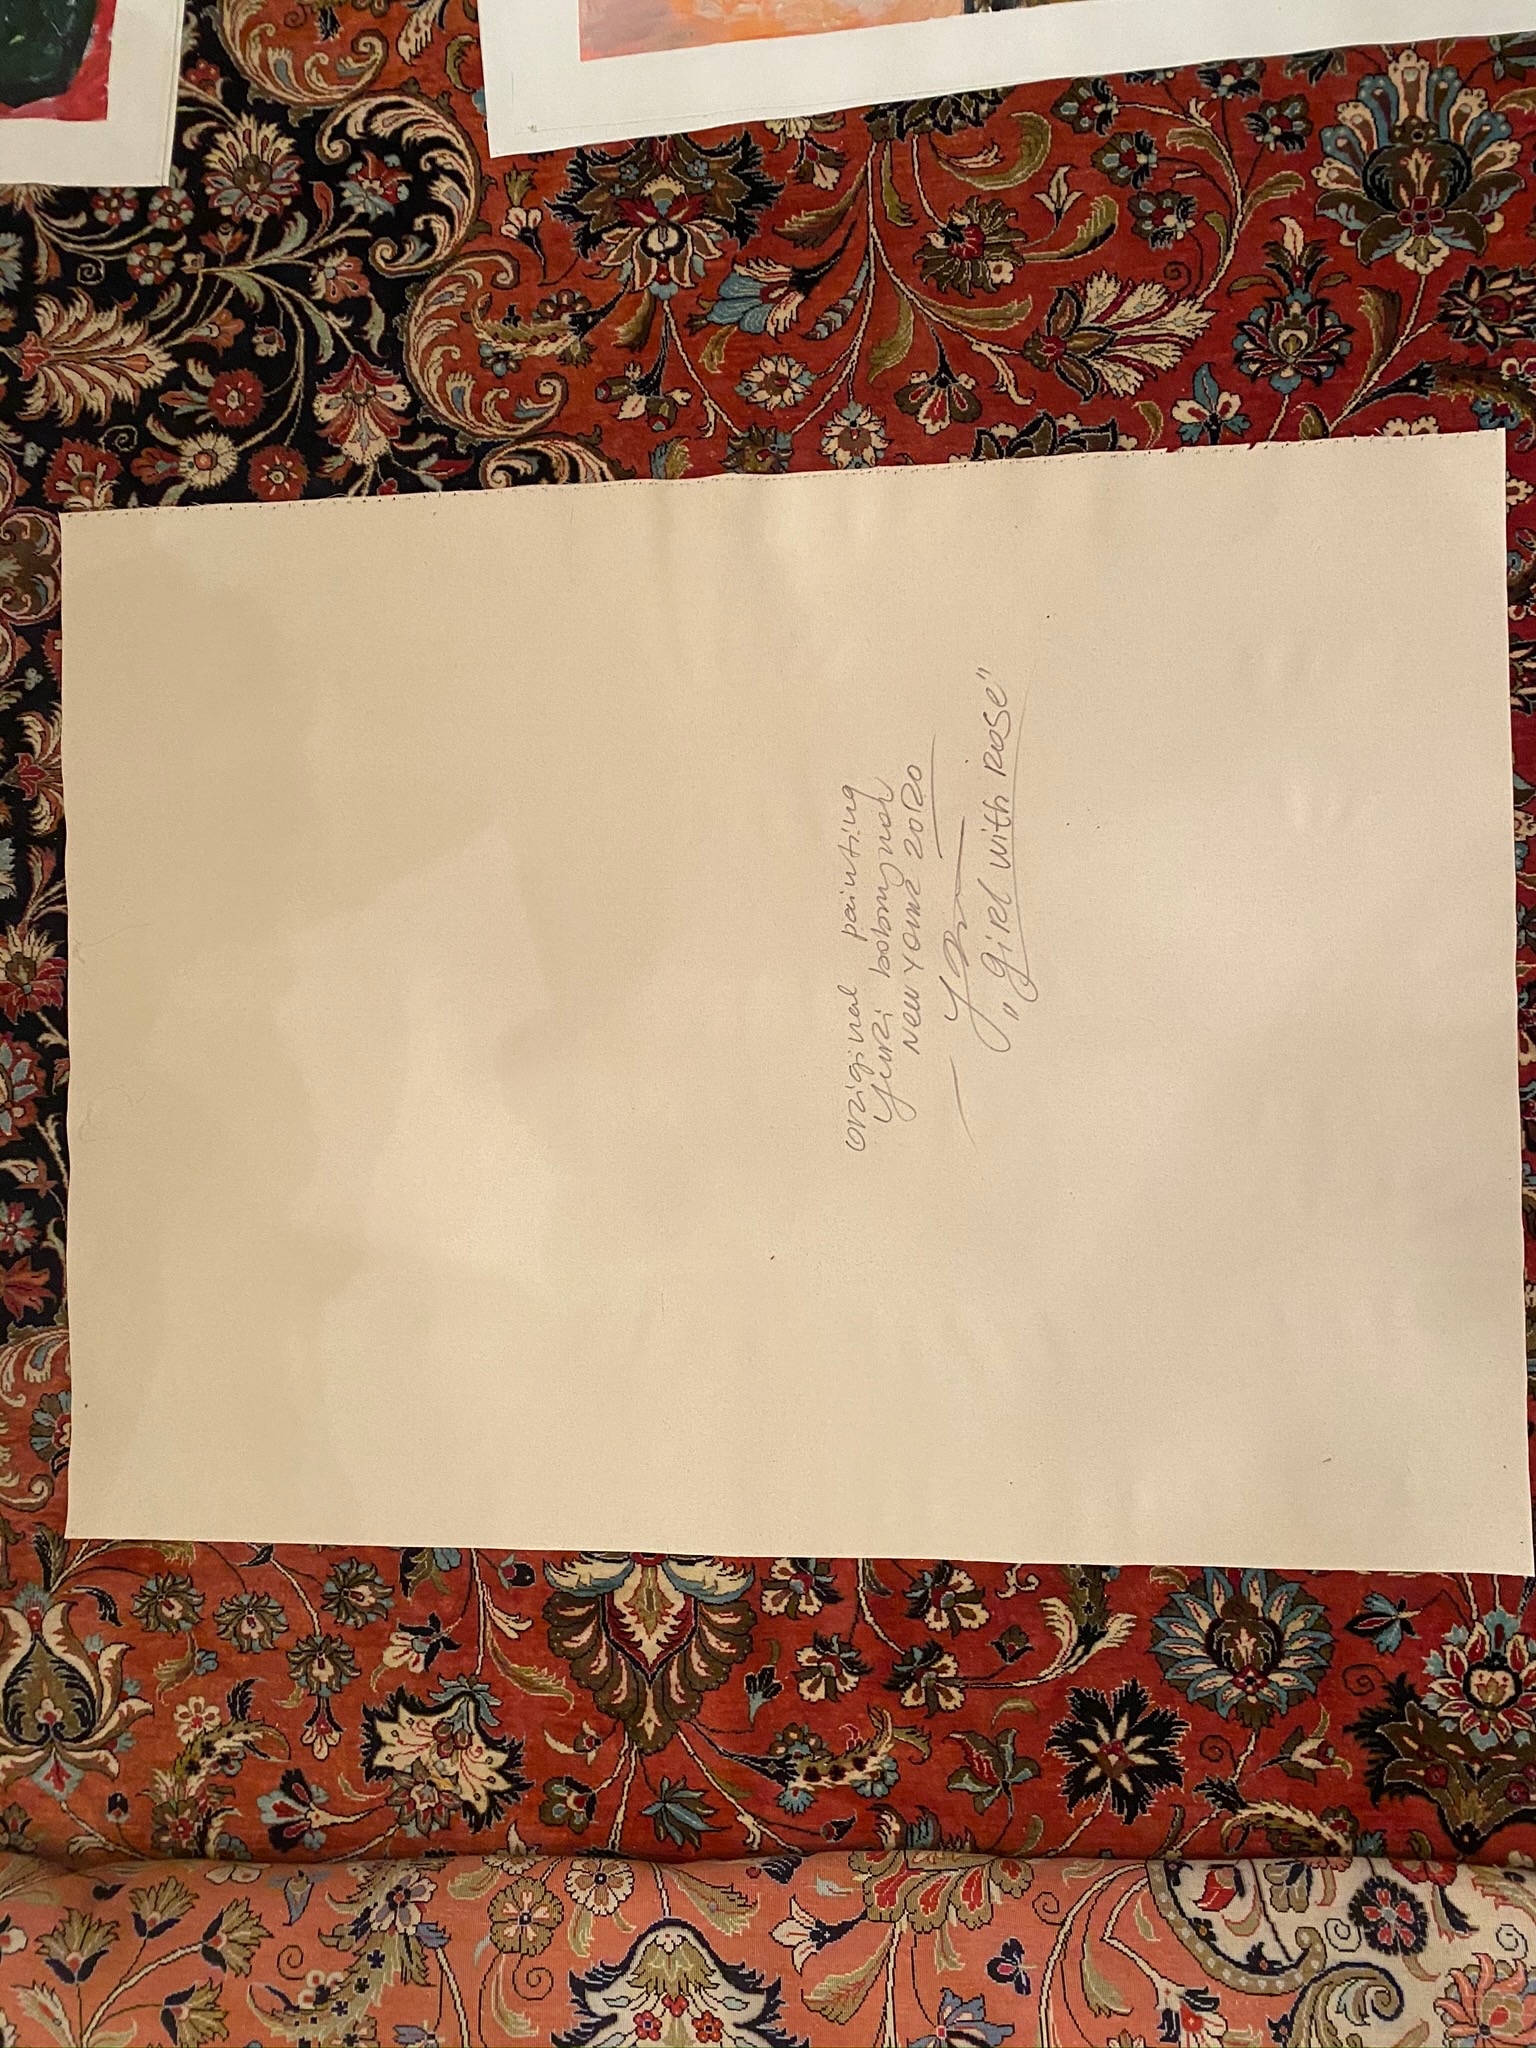 original painting
Yuri
New York 2020
„Girl with Rose"